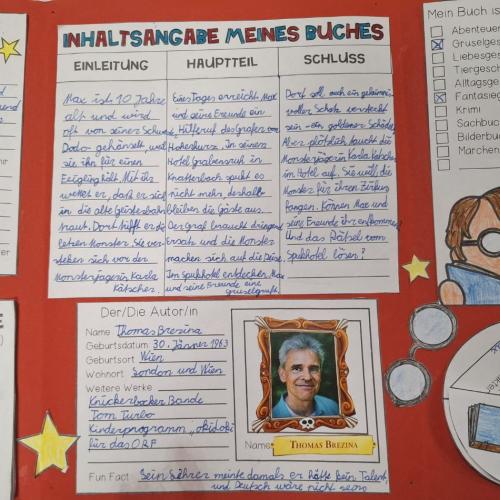 INHALTSANGABE MEINES BUCHES
EINLEITUNG
Max ist 10 Jahre
alt und wird
oft von seiner Schwes
Dodo gehänselt, weil
sie ihn für einen
Feigling hält. Mit ihr
wettet er, daß er sich
in die alte Geisterbahn
traut. Dort trifft er die
lebten Monster. Sie ver-
stecken sich vor der
Monsterjägerin Karla
Kätscher.
HAUPTTEIL
Eines Tages erreicht Max
und seine Freunde ein
Hilferuf des Grafen von
Hohenkurz. In seinem
Hotel Grabesruh in
Knatterbach spukt es
nicht mehr, deshalb
bleiben die Gäste aus.
Der Graf braucht dringend
Ersatz und die Monster
machen sich auf die Reise.
Im Spukhotel entdecken Max
und seine Freunde eine
Gruselgruft.
SCHLUSS
Dort soll auch ein geheimnis
voller Schatz versteckt
sein - ein goldener Schädel.
Aber plötzlich taucht die
Monsterjägerin Karla Kätscher
im Hotel auf. Sie will die
Monster für ihren Zirkus
fangen. Können Max und
seine Freunde ihr entkommen
Und das Rätsel vom
Spukhotel lösen?
Mein Buch is
Abenteue
Gruselge
Liebesges
Tiergesch
Alltagsge
Fantasieg
Krimi
Sachbuc
Bilderbu
Märchen
Der/Die Autor/in
Name Thomas Brezina
Geburtsdatum 30. Jänner 1963
Geburtsort Wien
Wohnort London und Wien
Weitere Werke
Knickerbocker Bande
Tom Turbo
Kinderprogramm "okidoki"
für das ORF
Name: THOMAS BREZINA
Fun Fact Sein Lehrer meinte damals er hätte kein Talent
und Deutsch wäre nicht seins